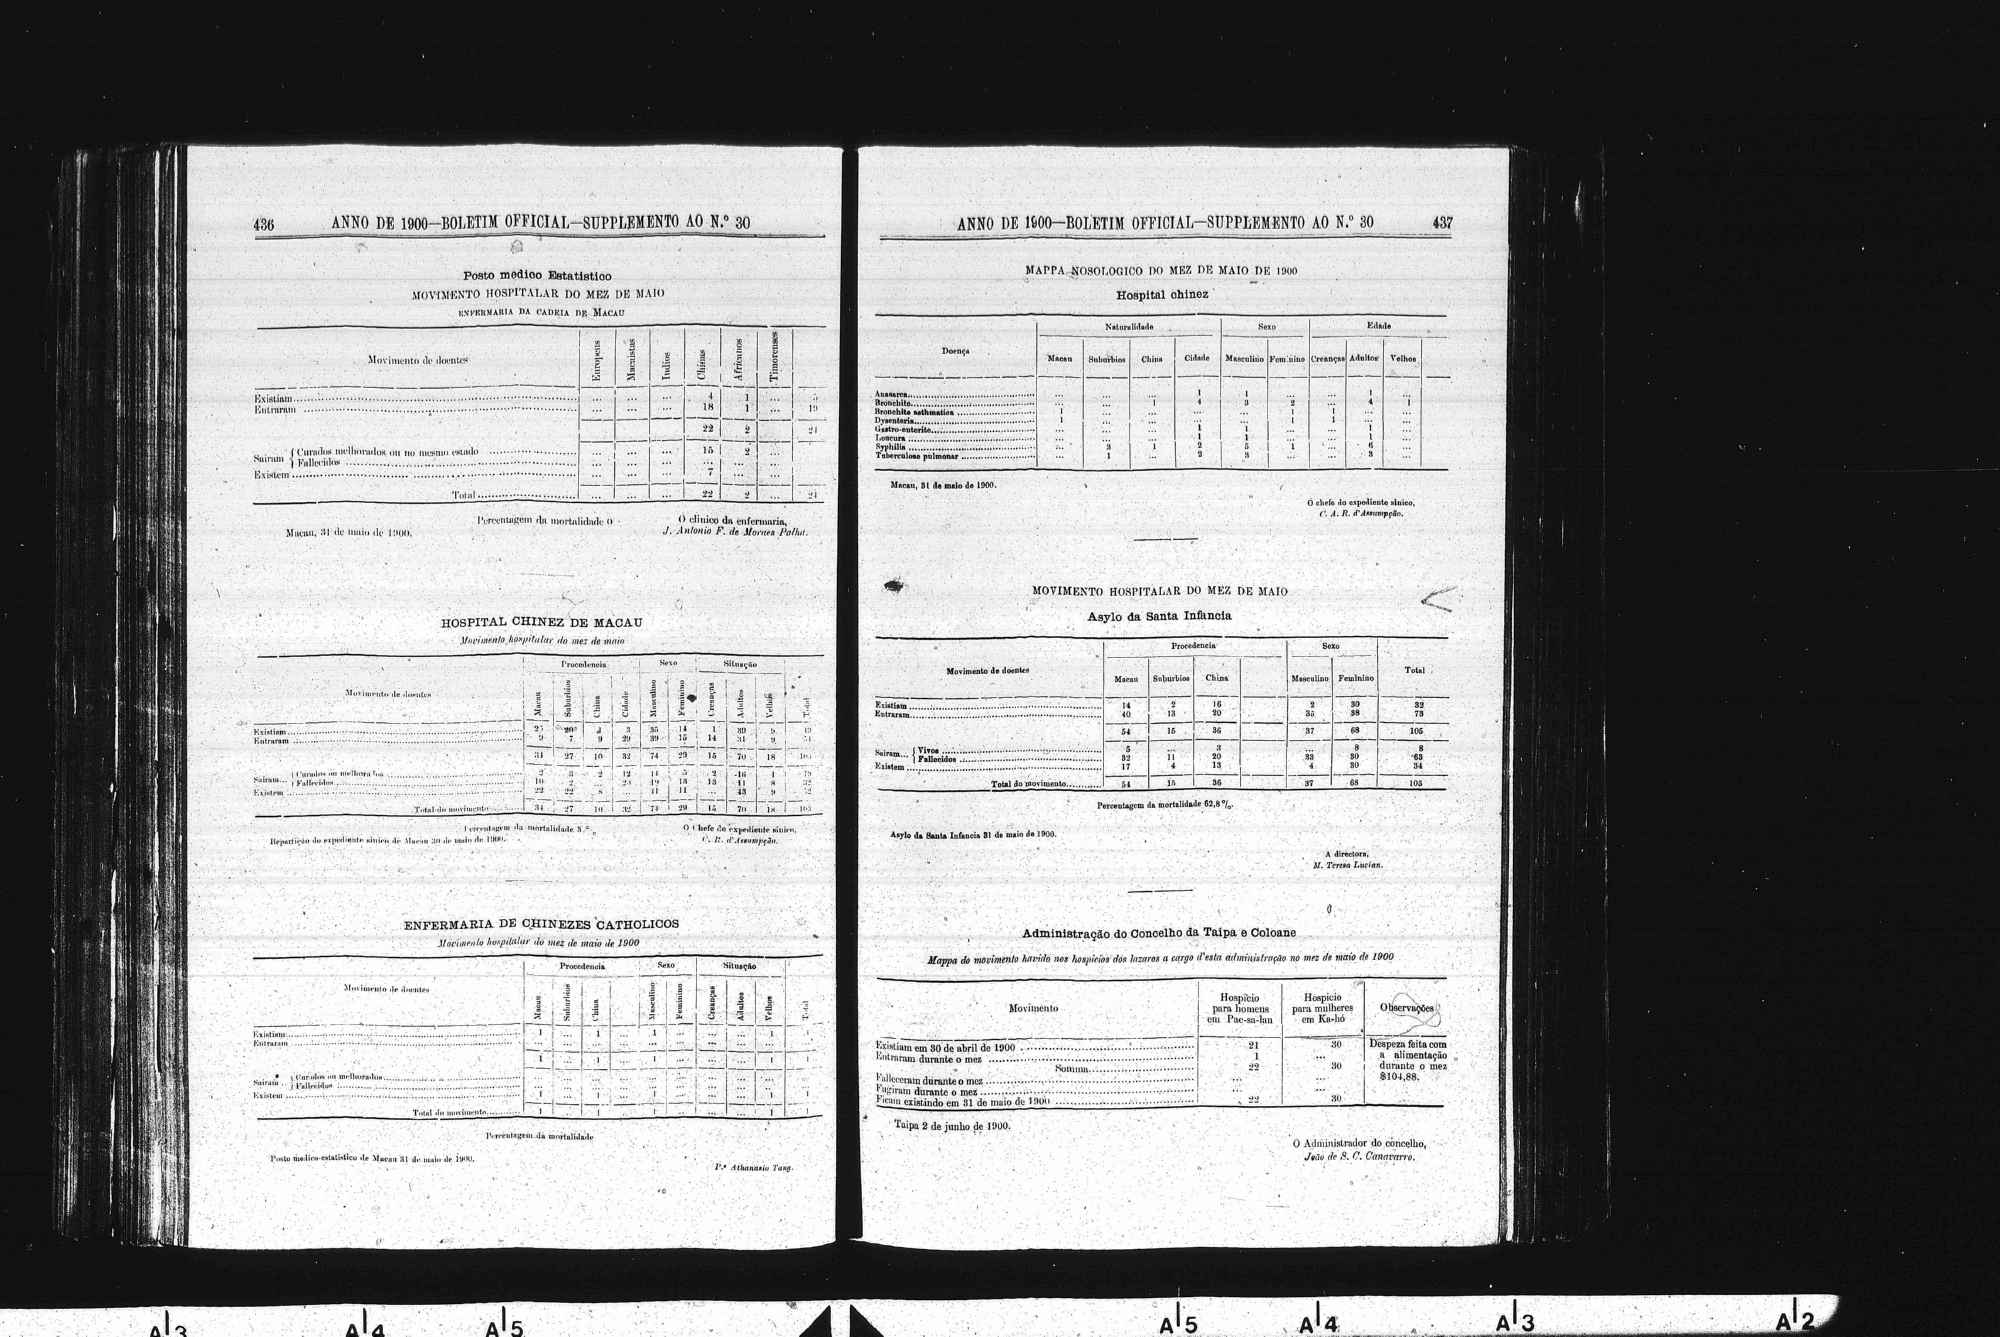 436 ANNO DE 1900—BOLETIM OFFICIAL—SUPPLEMENTO AO N.º 30
Posto medico Estatistico
MOVIMENTO HOSPITALAR DO MEZ DE MAIO
ENFERMARIA DA CADEIA DE MACAU
Movimento de doentes Europeus Macaistas Indios Chinas Africanos Timorenses
Existiam ... ... ... 4 1 ... 5
Entraram ... ... ... 18 1 ... 19
22 2 24
Sairam { Curados melhorados ou no mesmo estado ... ... ... 15 2 ...
{ Fallecidos ... ... ... ... ... ...
Existem ... ... ... 7 ... ...
Total ... ... ... 22 2 ... 24
Percentagem da mortalidade 0
O clinico da enfermaria,
Macau, 31 de maio de 1900.
J. Antonio F. de Moraes Palha.
HOSPITAL CHINEZ DE MACAU
Movimento hospitalar do mez de maio
Procedencia Sexo Situação
Movimento de doentes Macau Suburbios China Cidade Masculino Feminino Creanças Adultos Velhos Total
Existiam 25 20 1 3 35 14 1 39 9 49
Entraram 9 7 9 29 39 15 14 31 9 54
34 27 10 32 74 29 15 70 18 103
Sairam { Curados ou melhorados 2 3 2 12 14 5 2 16 1 19
{ Fallecidos 10 2 ... 20 19 13 13 11 8 32
Existem 22 22 8 ... 41 11 ... 43 9 52
Total do movimento 34 27 10 32 74 29 15 70 18 103
Percentagem da mortalidade
O Chefe do expediente sinico,
Repartição do expediente sinico de Macau 30 de maio de 1900.
C. R. d'Assumpção.
ENFERMARIA DE CHINEZES CATHOLICOS
Movimento hospitalar do mez de maio de 1900
Procedencia Sexo Situação
Movimento de doentes Macau Suburbios China Masculino Feminino Creanças Adultos Velhos Total
Existiam 1 ... 1 ... 1 ... ... ... 1
Entraram ... ... ... ... ... ... ... ... ...
1 ... 1 ... 1 ... ... ... 1 1
Sairam { Curados ou melhorados ... ... ... ... ... ... ... ... ...
{ Fallecidos ... ... ... ... ... ... ... ... ...
Existem 1 ... 1 ... 1 ... ... ... 1 1
Total do movimento 1 ... 1 ... 1 ... ... ... 1 1
Percentagem da mortalidade
Posto medico-estatistico de Macau 31 de maio de 1900.
P.e Athanasio Tang.
ANNO DE 1900—BOLETIM OFFICIAL—SUPPLEMENTO AO N.º 30 437
MAPPA NOSOLOGICO DO MEZ DE MAIO DE 1900
Hospital chinez
Naturalidade Sexo Edade
Doença Macau Suburbios China Cidade Masculino Feminino Creanças Adultos Velhos
Anasarca ... ... ... 1 1 ... ... 1 ...
Bronchite ... ... 1 4 3 2 ... 4 1
Bronchite asthmatica 1 ... ... ... ... 1 1 ... ...
Dysenteria 1 ... ... ... ... 1 1 ... ...
Gastro-enterite ... ... ... 1 1 ... ... 1 ...
Loucura ... ... ... 1 1 ... ... 1 ...
Syphilis ... 3 1 2 5 1 ... 6 ...
Tuberculose pulmonar ... 1 ... 2 3 ... ... 3 ...
Macau, 31 de maio de 1900.
O chefe do expediente sinico,
C. A. R. d'Assumpção.
MOVIMENTO HOSPITALAR DO MEZ DE MAIO
Asylo da Santa Infancia
Procedencia Sexo
Movimento de doentes Macau Suburbios China Masculino Feminino Total
Existiam 14 2 16 2 30 32
Entraram 40 13 20 35 38 73
54 15 36 37 68 105
Sairam { Vivos 5 ... 3 ... 8 8
{ Fallecidos 32 11 20 33 30 63
Existem 17 4 13 4 30 34
Total do movimento 54 15 36 37 68 105
Percentagem da mortalidade 62,8 %.
Asylo da Santa Infancia 31 de maio de 1900.
A directora,
M. Teresa Lucian.
Administração do Concelho da Taipa e Coloane
Mappa do movimento havido nos hospicios dos lazaros a cargo d'esta administração no mez de maio de 1900
Movimento Hospicio para homens em Pac-sa-lan Hospicio para mulheres em Ka-hó Observações
Existiam em 30 de abril de 1900 21 30 Despeza feita com
Entraram durante o mez 1 ... a alimentação
Somma 22 30 durante o mez
Falleceram durante o mez ... ... $104,88.
Fugiram durante o mez ... ...
Ficam existindo em 31 de maio de 1900 22 30
Taipa 2 de junho de 1900.
O Administrador do concelho,
João de S. C. Canavarro.
A|3 A|4 A|5 A|5 A|4 A|3 A|2